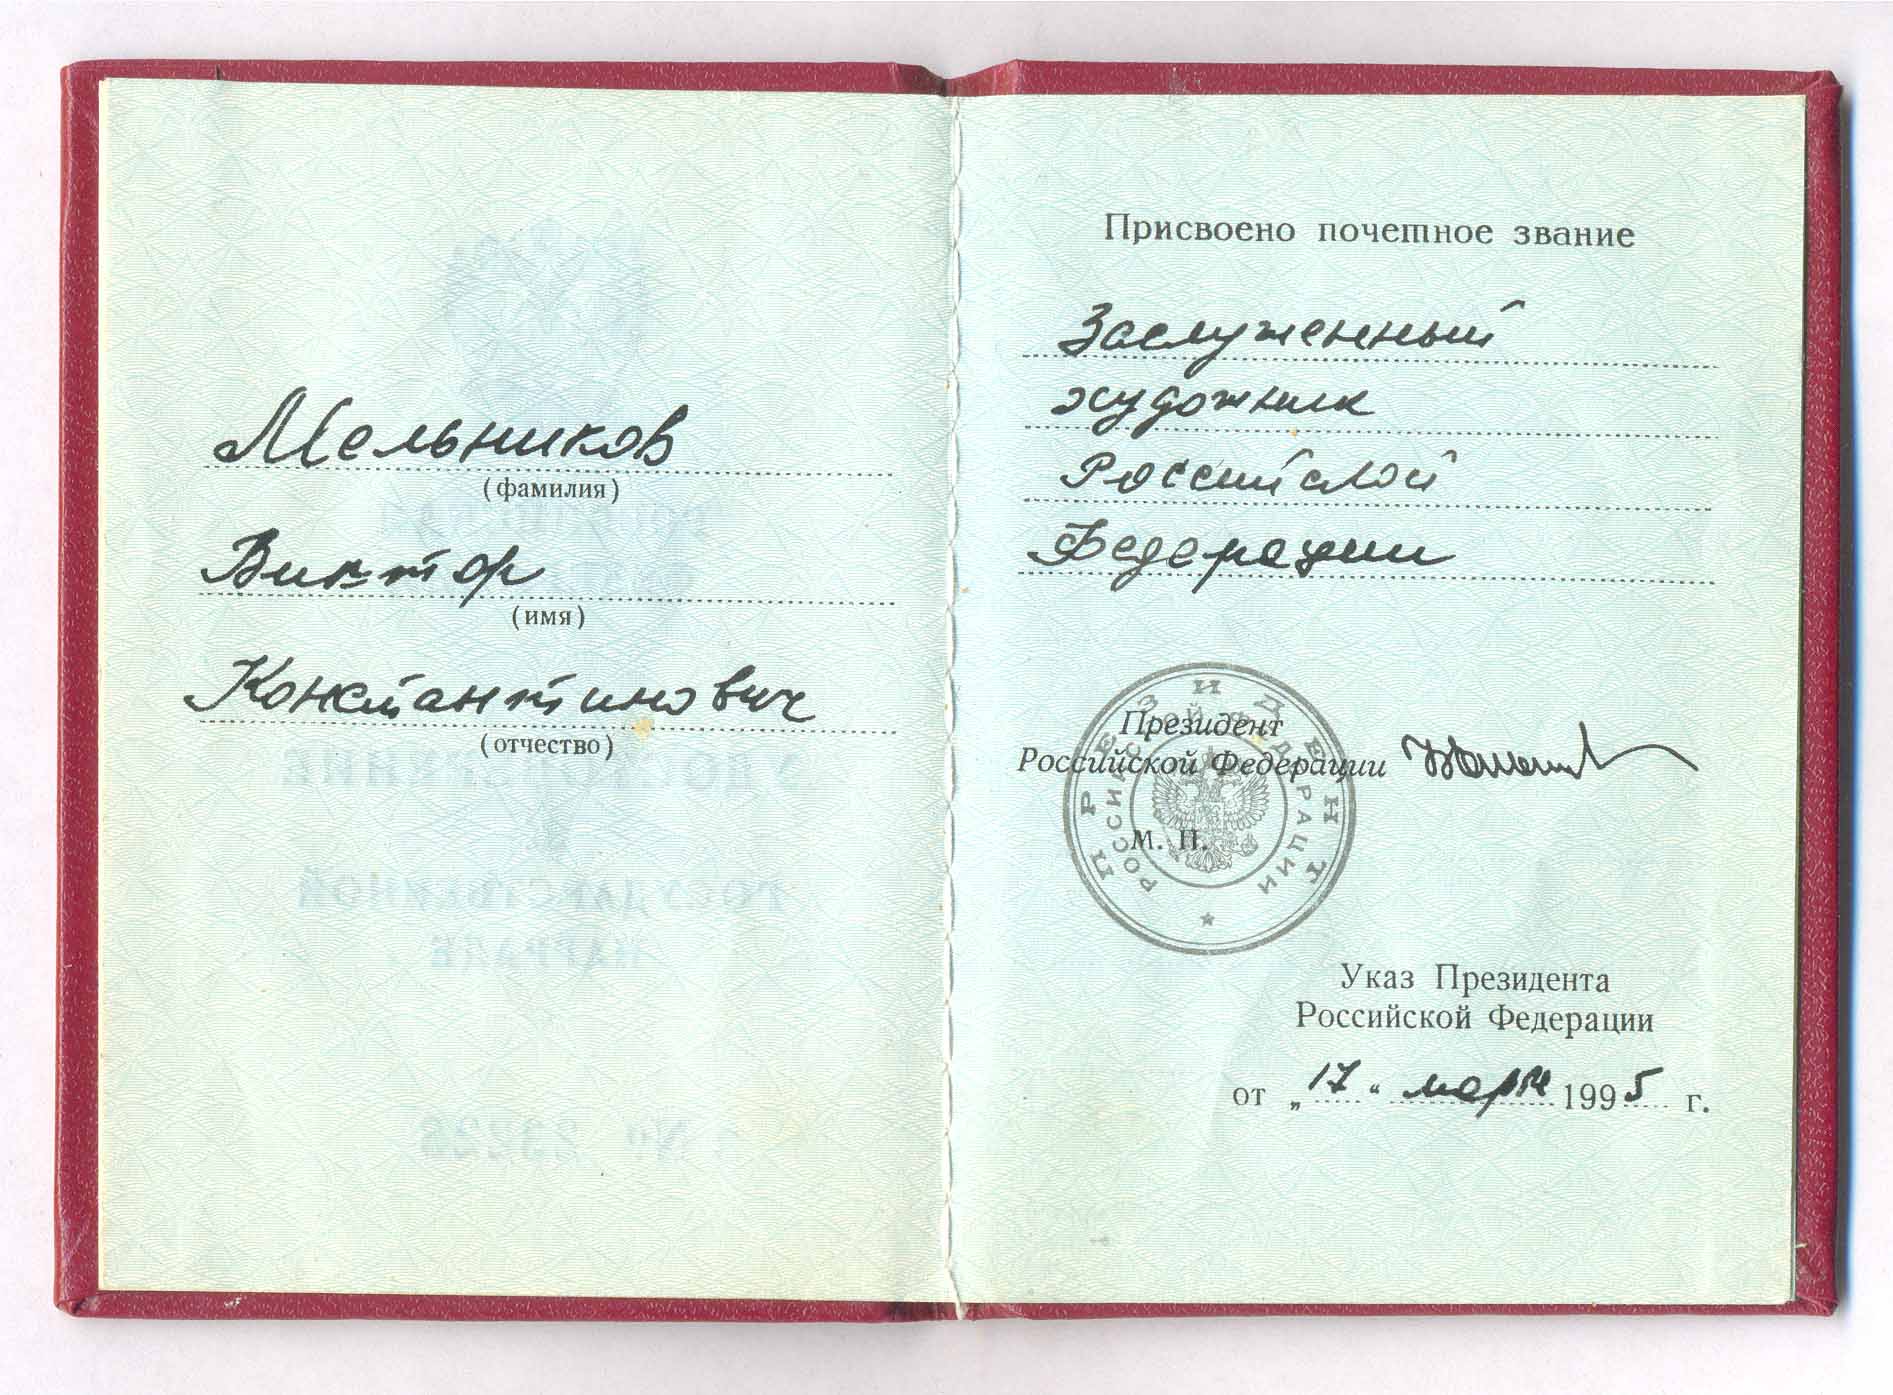 Мельников
(фамилия)
Виктор
(имя)
Константинович
(отчество)
Присвоено почетное звание
Заслуженный
художник
Российской
Федерации
Президент
Российской Федерации
М. П.
ПРЕЗИДЕНТ
РОССИЙСКОЙ ФЕДЕРАЦИИ
Указ Президента
Российской Федерации
от „17“ марта 1995 г.